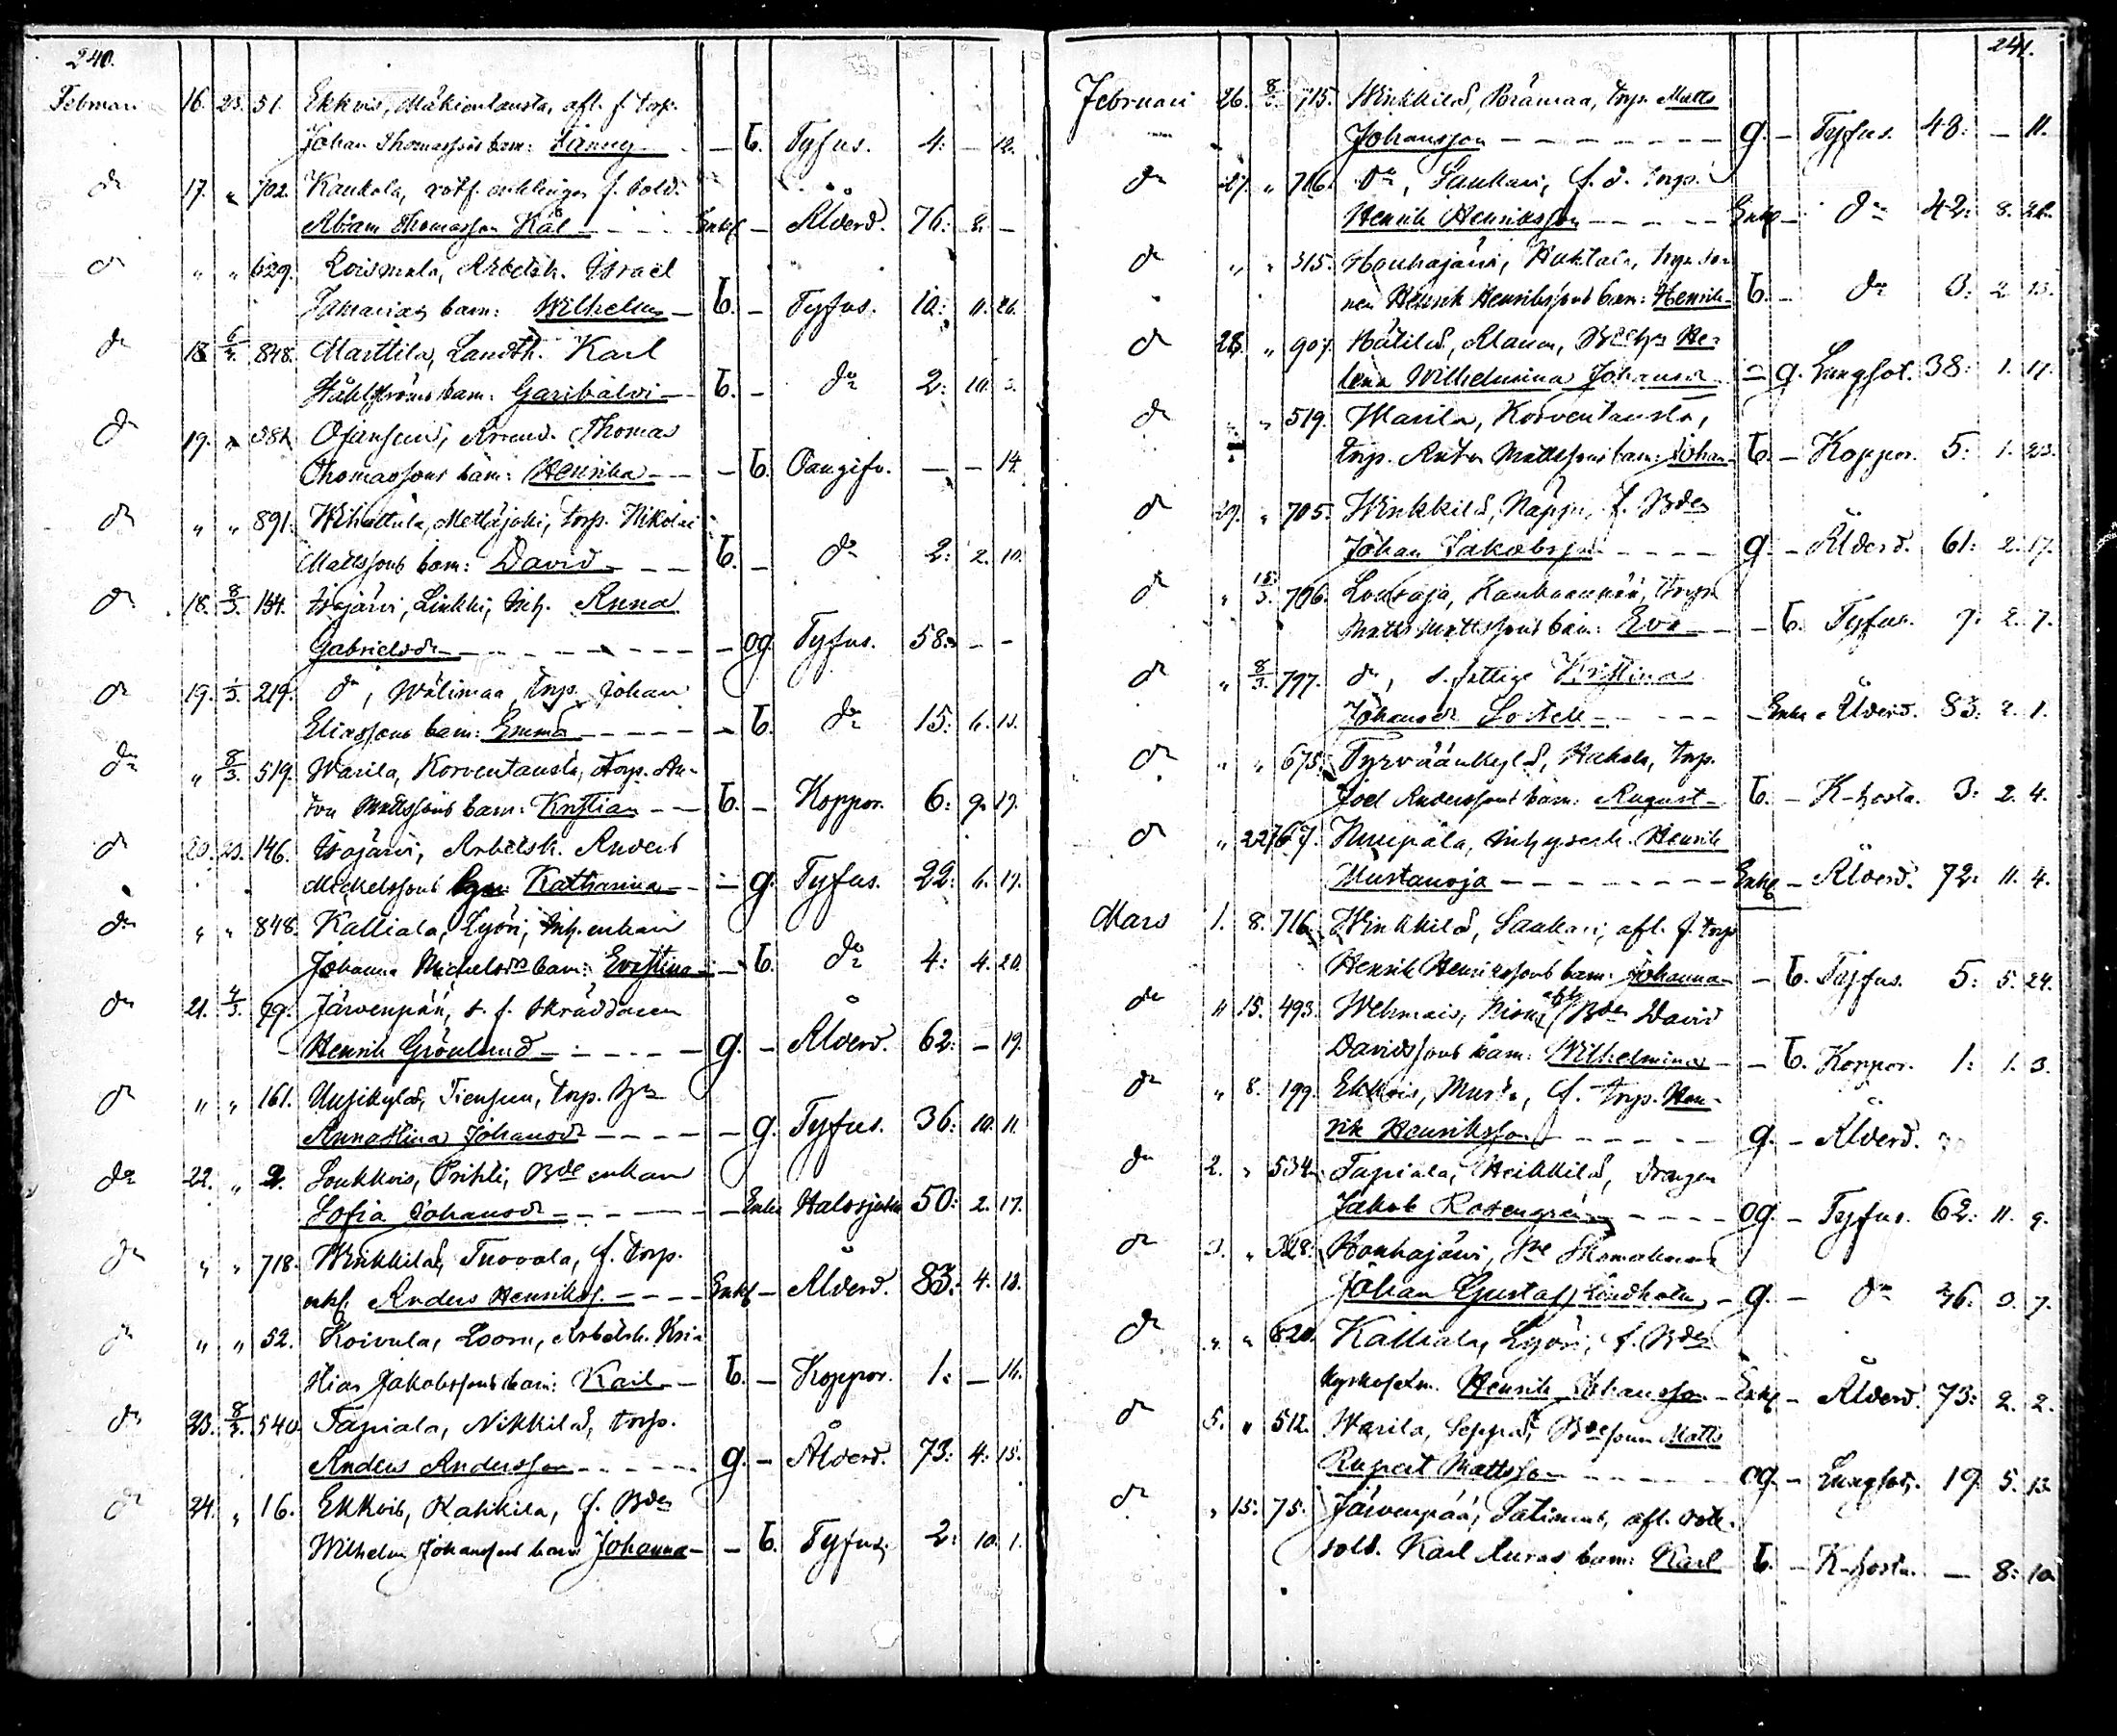 240.
Februari 16. 23. 51. Ekkois, Mäkientausta, afl. f. torp.
Johan Thomassons barn: Fanny — — b. Tyfus. 4: — 12.
do 17. " 702. Kaukola, rotf. enklingen f. sold.
Abram Thomasson Käl — Enkl — Ålderd. 76: 8. —
do " " 629. Loismala, Arbetsk. Israel
Zakarias barn: Wilhelm — b. — Tyfus. 10: 11. 26.
do 18 6/3. 848. Marttila, Landth. Karl
Ståhlströms barn: Garibaldi — b. — do 2: 10. 3.
do 19. " 381. Ojansuu, Arrend. Thomas
Thomassons barn: Henrika — — b. Oangifv. — — 14.
do " " 891. Wihattula, Mettäjoki, torp. Nikolai
Mattssons barn: David — b. — do 2: 2. 10.
do 18. 8/3. 154. Isojärvi, Linkki, Inh. Anna
Gabrielsdr — — og. Tyfus. 58: — —
do 19. 1/3. 219. do, Wälimaa, torp. Johan
Eliassons barn: Emma — — b. do 15: 6. 13.
do " 8/3. 519. Warila, Korventausta, torp. An-
ton Mattssons barn: Kristian — b. — Koppor. 6: 9. 19.
do 20. 23. 146. Isojärvi, Arbetsk. Anders
Mickelssons Katharina — — g. Tyfus. 22: 6. 19.
do " " 848. Kalliala, Lyöri, Inh. enkan
Johanna Michelsdrs barn: Evastina — — b. do 4: 4. 20.
do 21. 4/3. 79. Järvenpää, s. f. skräddaren
Henrik Grönlund — g. — Ålderd. 62: — 19.
do " " 161. Uusikylä, Tiensuu, torp. h:u
Annastina Johansdr — — g. Tyfus. 36: 10. 11.
do 22. " 2. Soukkois, Prihti, Bde enkan
Sofia Johansdr — — Enka Halssjukd. 50: 2. 17.
do " " 718. Winkkilä, Tuovola, f. torp.
enkl. Anders Henriks. — Enkl — Ålderd. 83: 4. 18.
do " " 52. Koivula, Loorn, Arbetsk. Kris-
tian Jakobssons barn: Karl — b. — Koppor. 1: — 16.
do 23. 8/3. 540. Tapiala, Nikkilä, torp.
Anders Andersson — g. — Ålderd. 73: 4. 15.
do 24. " 16. Ekkois, Kahkila, f. Bden
Wilhelm Johanssons barn Johanna — — b. Tyfus. 2: 10. 1.
241.
Februari 26. 8/3. 715. Winkkilä, torp. Matts
Johansson — g. — Tyfus. 48: — 11.
do 27. " 716. do, Saukari, f. d. torp.
Henrik Henriksson — Enkl — do 42: 8.
do " " 315. Houhajärvi, Huhtala,
Henrik Henrikssons barn: Henrik — b. — do 3: 2. 13.
do 28. " 907. Hätilä, Alanen, He-
lena Wilhelmina Johansdr — g. Lungsot. 38: 1. 17.
do " " 519. Warila, Korventausta,
torp. Anton Mattssons barn: Johan — b. — Koppor. 5: 1. 23.
do 29. " 705. Winkkilä, Näppi, f. Bden
Johan Jakobsson — g. — Ålderd. 61: 2. 17.
do " 15/3. 706. Loutraja, Kankaanpää, torp.
Matts Mattssons barn: Eva — — b. Tyfus. 9: 2. 7.
do " 8/3. 797. do, s. fattige Kristina
Johansdr — Enka — Ålderd. 83: 2. 1.
do " " 675. Tyrväänkylä, Hakola, torp.
Joel Anderssons barn: August — b. — K-hosta. 3: 2. 4.
do " 22 767. Nuupala, Inhyseth. Henrik
Mustanoja — Enkl — Ålderd. 72: 11. 4.
Mars 1. 8. 716. Winkkilä, Saukari, afl. f. torp
Henrik Henrikssons barn: Johanna — — b. Tyfus. 5: 5. 24.
do " 15. 493. Wehmais, Bden David
Davidssons barn: Wilhelmina — — b. Koppor. 1: 1. 3.
do " 8. 199. Ekkois, f. torp. Hen-
rik Henriksson — g. — Ålderd.
do 2. " 534. Tapiala, Heikkilä, drängen
Jakob Rosengrén — og. — Tyfus. 62: 11. 9.
do 3. " 328. Houhajärvi,
Johan Gustaf Lindholm — g. — do 36: 3. 7.
do " " 820. Kalliala, Lyöri, f. Bden
Henrik Johansson — Enkl — Ålderd. 73: 2. 2.
do 5. " 512. Warila, Seppä, Bdesonen Matts
Rupert Mattsson — og. — Lungsot. 19. 5. 13.
do " 15. 75. Järvenpää, Satimus, afl. rote-
sold. Karl Auras barn: Karl — b. — K-hosta. — 8: 10.